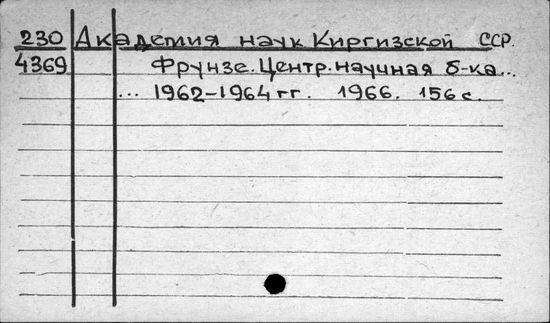 230 Академия наук Киргизской ССР.
4369 Фрунзе. Центр. научная б-ка...
... 1962-1964 гг. 1966. 156 с.